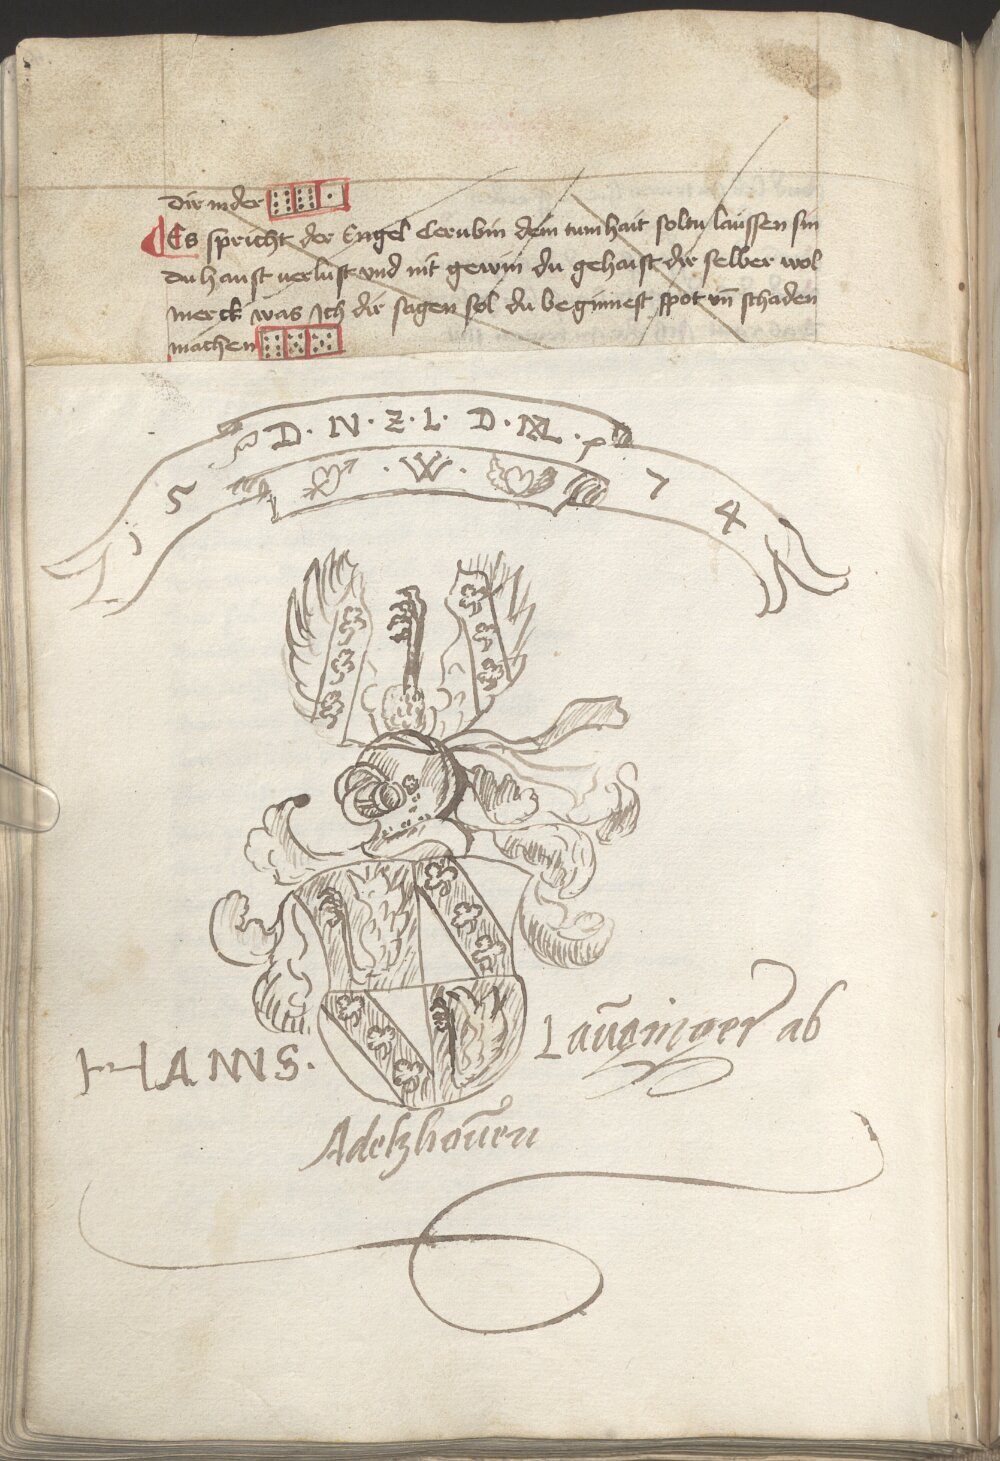 dir in der
Es spricht der Engel Cerubin dein tumhait soltu laussen sin
du haust uerlust vnd nit gewin du gehaist dir selber wol
merck was ich dir sagen sol du beginnest spot vn̄ schaden
machen
D. N. Z. L. D. M.
1 5 . W . 7 4
HANNS. Laūginger ab
Adelzhoūen